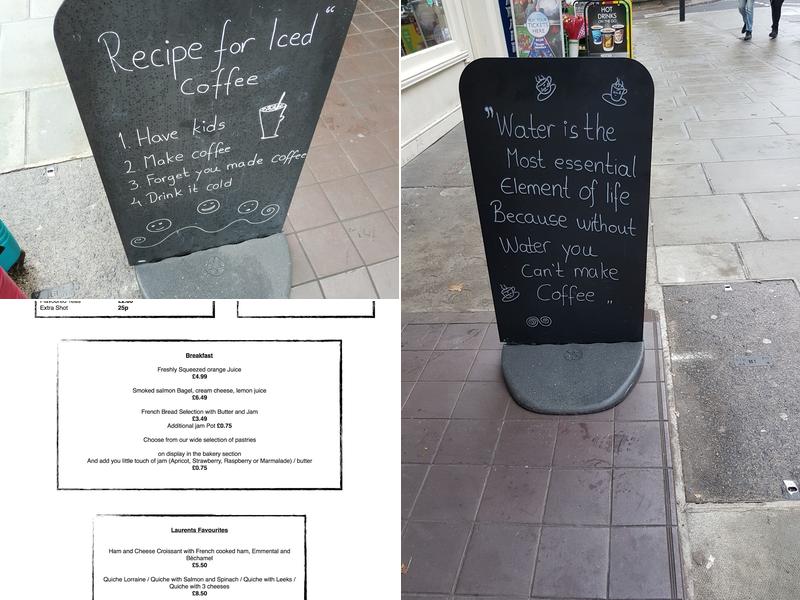 Recipe for Iced "
Coffee
1. Have kids
2. Make coffee
3. Forget you made coffee
4. Drink it cold
Extra Shot 25p
Breakfast
Freshly Squeezed orange Juice
£4.99
Smoked salmon Bagel, cream cheese, lemon juice
£6.49
French Bread Selection with Butter and Jam
£3.49
Additional jam Pot £0.75
Choose from our wide selection of pastries
on display in the bakery section
And add you little touch of jam (Apricot, Strawberry, Raspberry or Marmalade) / butter
£0.75
Laurents Favourites
Ham and Cheese Croissant with French cooked ham, Emmental and
Béchamel
£5.50
Quiche Lorraine / Quiche with Salmon and Spinach / Quiche with Leeks /
Quiche with 3 cheeses
£8.50
HOT
DRINKS
ON THE GO
YOUR
TICKETS
HERE
"Water is the
Most essential
Element of life
Because without
Water you
Can't make
Coffee „